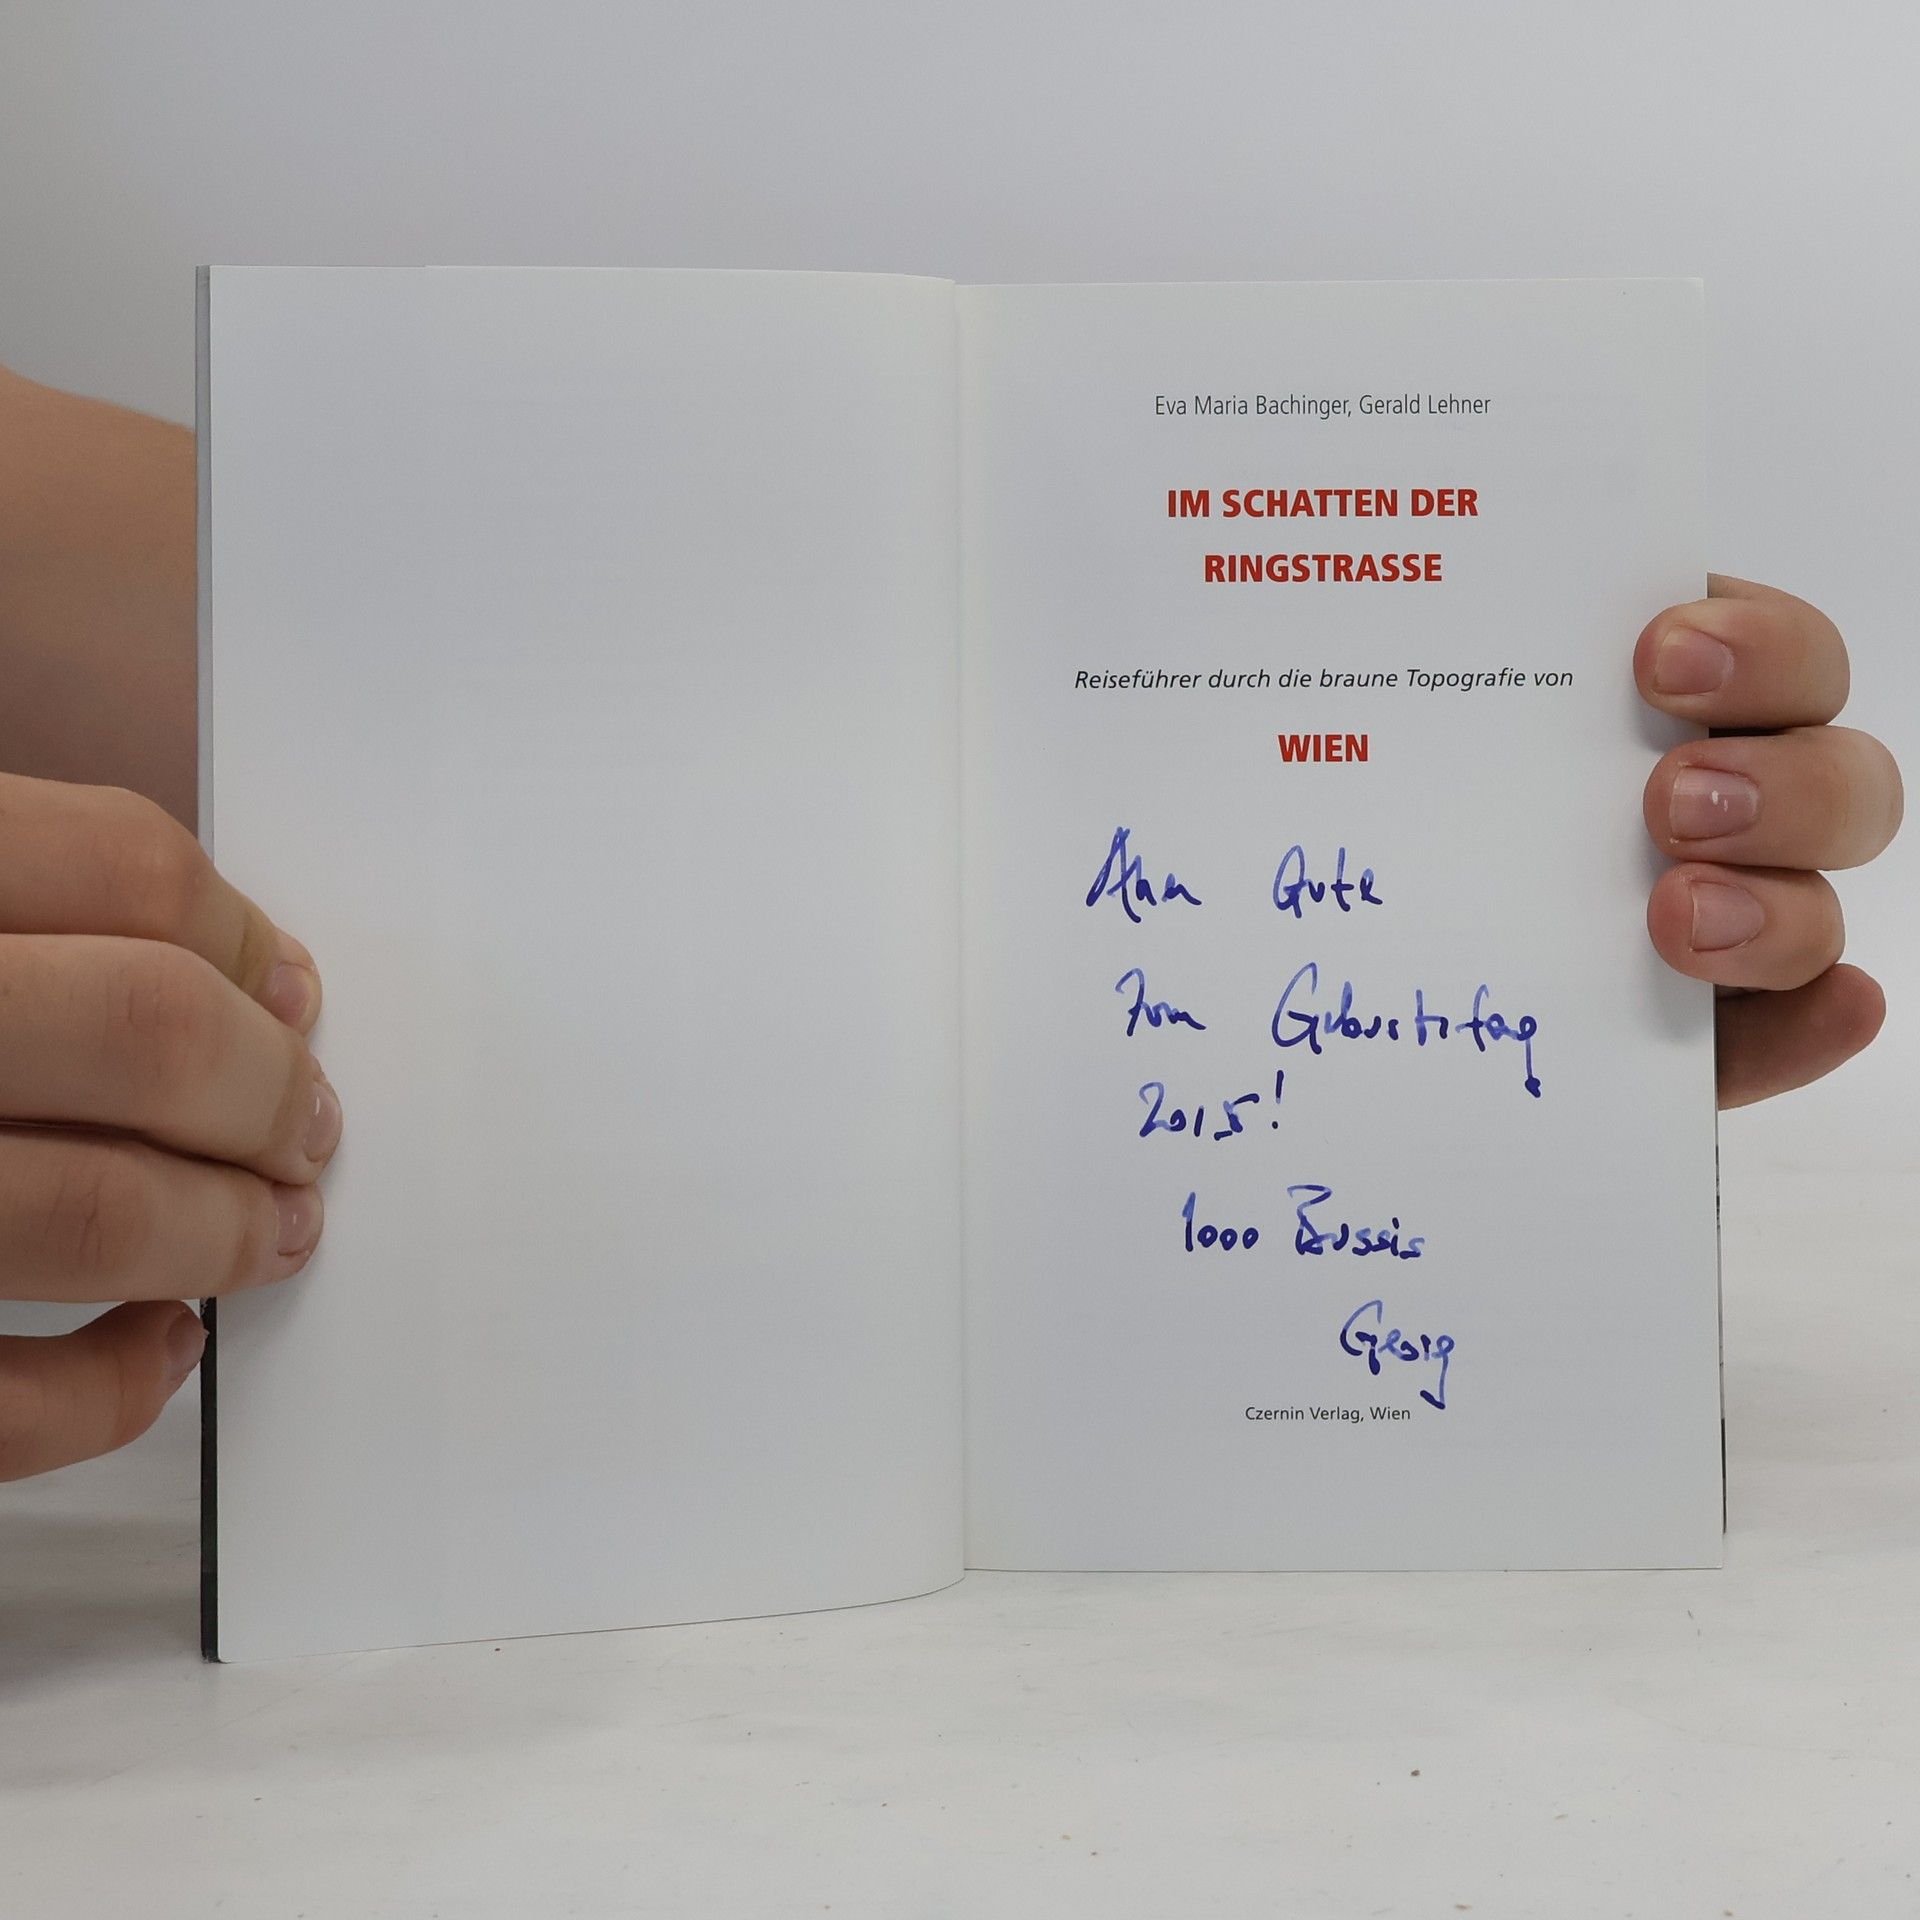 Eva Maria Bachinger, Gerald Lehner
IM SCHATTEN DER
RINGSTRASSE
Reiseführer durch die braune Topografie von
WIEN
Alles Gute
zum Geburtstag
2015!
1000 Bussis
Georg
Czernin Verlag, Wien